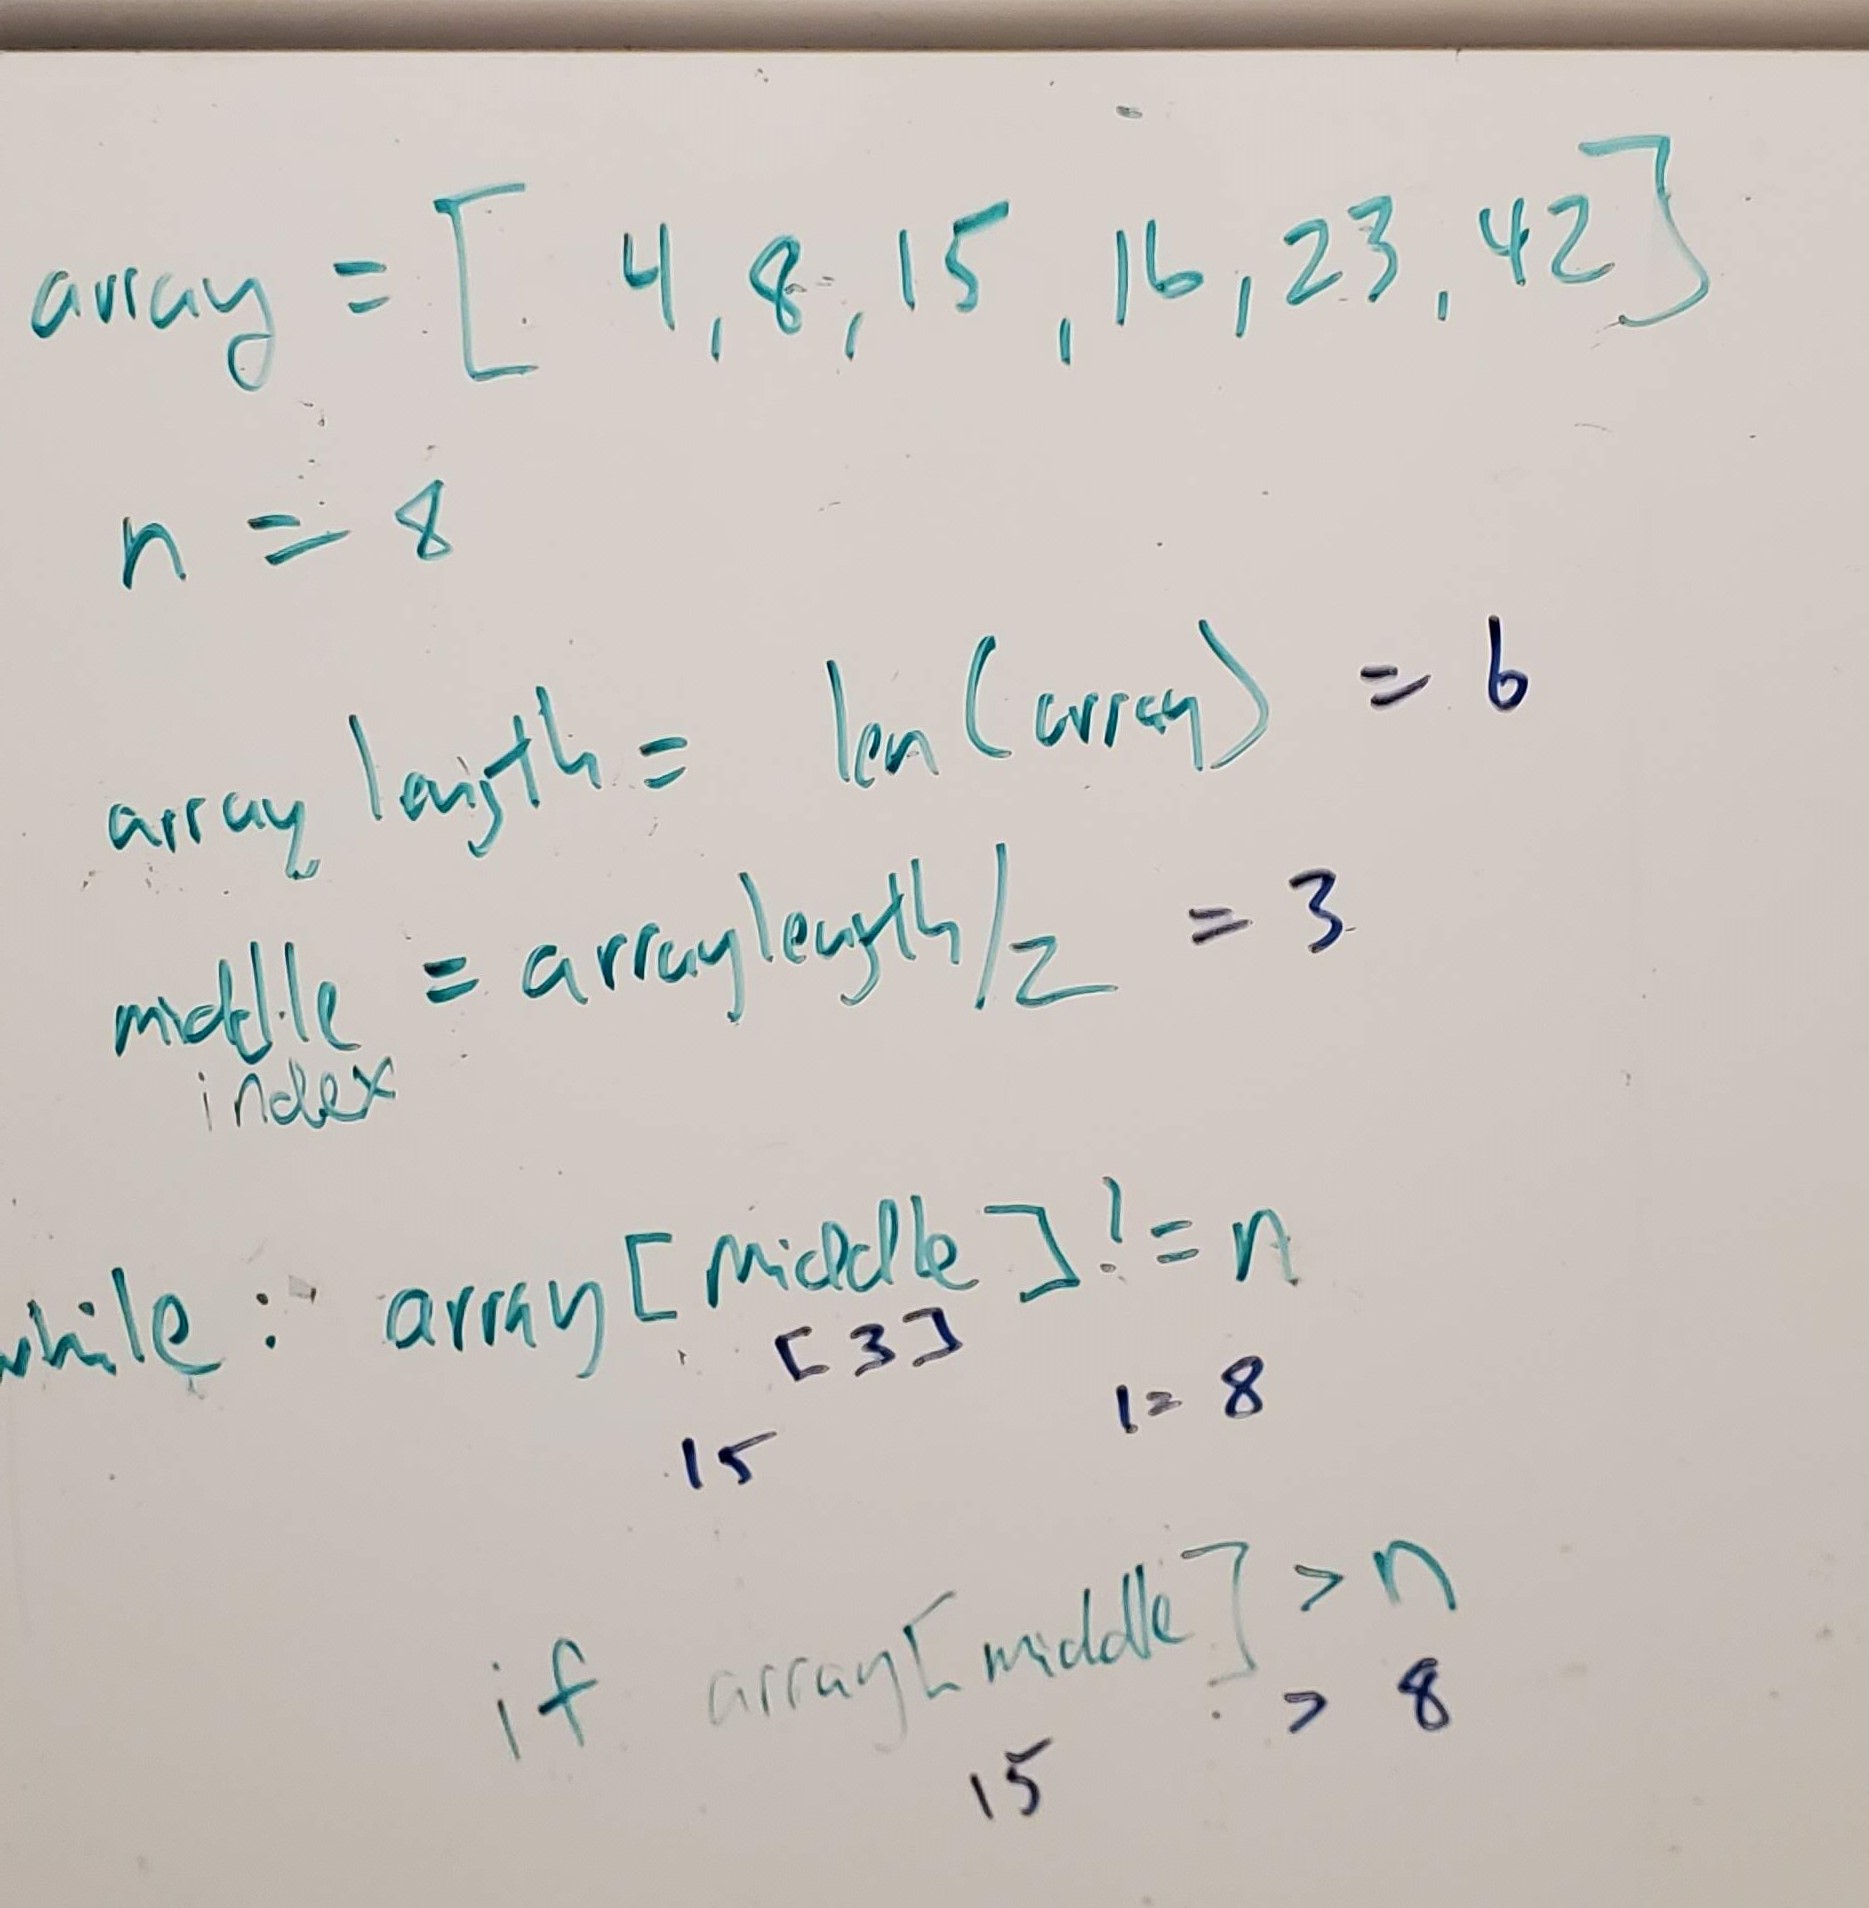 array = [ 4, 8, 15, 16, 23, 42]
n = 8
array length = len (array) = 6
middle = arraylength/2 = 3
index
while : array [middle] != n
[3]
15 != 8
if array[middle] > n
15 > 8